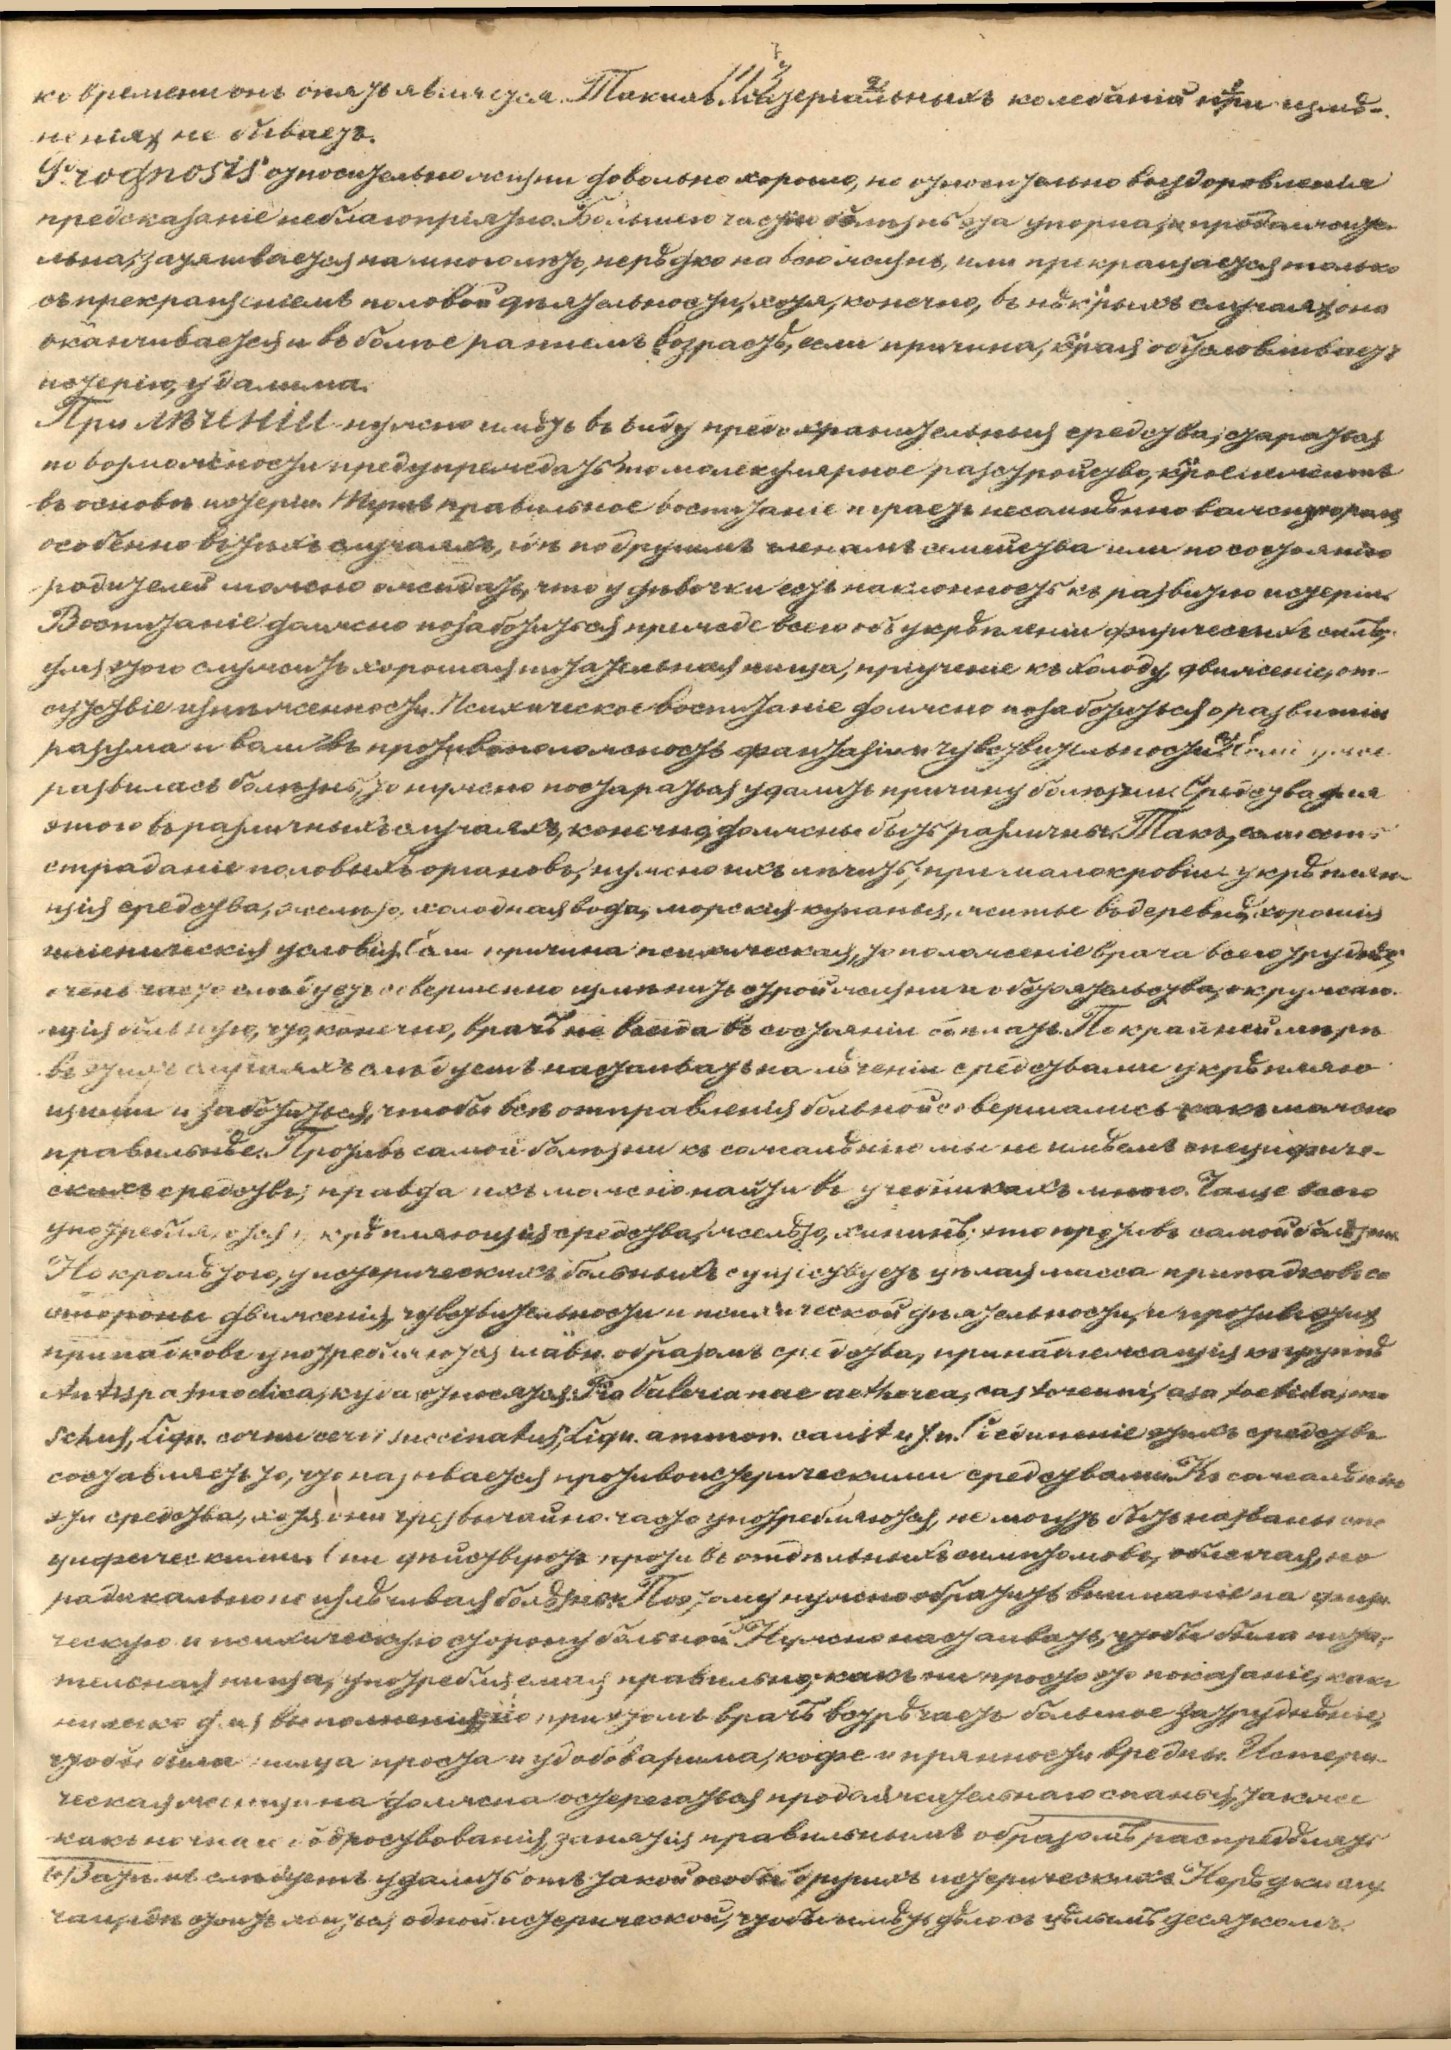 113
ко времени онъ опять явится. Такихъ матеріальныхъ колебаній при измѣ-
неніях не бываетъ.
Prognosis относительно жизни довольно хорошо, но относительно выздоровленія
предсказаніе неблагопріятно. Большею частію болѣзнь эта упорна и продолжите-
льна, затягивается на много лѣтъ, нерѣдко на всю жизнь, или прекращается только
съ прекращеніемъ половой дѣятельности, хотя, конечно, въ нѣкрыхъ случаях она
оканчивается и въ болѣе раннемъ возрастѣ, если причина, края обусловливаетъ
истерію, удалима.
При лѣченіи нужно имѣть въ виду предохранительныя средства; стараться
по возможности предупреждать то молекулярное разстройство, крое лежитъ
въ основѣ истеріи. Тутъ правильное воспитаніе играетъ несомнѣнно важную роль
особенно въ тѣхъ случаяхъ, гдѣ по другимъ членамъ семейства или по состоянію
родителей можно ожидать, что у дѣвочки есть наклонность къ развитію истеріи.
Воспитаніе должно позаботиться прежде всего объ укрѣпленіи физическихъ силъ;
для этого служитъ хорошая питательная пища, пріученіе къ холоду, движеніе, от-
сутствіе изнѣженности. Психическое воспитаніе должно позаботиться о развитіи
разума и воли въ противоположность фантазіи и чувствительности. Если уже
развилась болѣзнь, то нужно постараться удалить причину болѣзни. Средства для
этого въ различныхъ случаяхъ, конечно, должны быть различны. Такъ, если есть
страданіе половыхъ органовъ, нужно ихъ лѣчить; при малокровіи укрѣпляю-
щія средства, желѣзо, холодная вода, морскія купанья, житье въ деревнѣ, хорошія
гигіеническія условія. Если причина психическая, то положеніе врача всего труднѣе;
очень часто слѣдуетъ совершенно измѣнить строй жизни и обстоятельства, окружаю-
щія больную, что, конечно, врачъ не всегда въ состояніи сдѣлать. По крайней мѣрѣ
въ этихъ случаяхъ слѣдуетъ настаивать на лѣченіи средствами укрѣпляю
щими и заботиться, чтобы всѣ отправленія больной совершались какъ можно
правильнѣе. Противъ самой болѣзни къ сожалѣнію мы не имѣемъ специфиче-
скихъ средствъ; правда ихъ можно найти въ учебникахъ много. Чаще всего
употребляются укрѣпляющія средства, желѣзо, хининъ; это противъ самой болѣзни.
Но кромѣ того, у истерическихъ больныхъ существуетъ цѣлая масса припадковъ со
стороны движенія, чувствительности и психической дѣятельности, и противъ этих
припадковъ употребляются главн. образомъ средства, принадлежащія къ группѣ
Antispasmodica, куда относятся: Tra Valerianae aetherea, castoreum, asa foetida, mo
schus, liqu. cornu cervi succinatus, liqu. ammon. caust и т.п. Соединеніе этихъ средствъ
составляетъ то, что называется противоистерическими средствами. Къ сожалѣнію
эти средства, хотя они чрезвычайно часто употребляются, не могутъ быть названы спе
цифическими. Они дѣйствуютъ противъ отдѣльныхъ симптомовъ, облегчая, но
радикально не излѣчивая болѣзнь. Поэтому нужно обратить вниманіе на физи
ческую и психическую сторону больной. Нужно настаивать, чтобы была пита-
тельная пища, употребляемая правильно; какъ ни просто это показаніе, какъ
ни легко для выполненія, но при этомъ врачъ встрѣчаетъ большое затрудненіе,
чтобы была пища проста и удобоварима, кофе и пряности вредны. Истери-
ческая женщина должна остерегаться продолжительнаго спанья, также
какъ ночнаго бодрствованія, занятія правильнымъ образомъ распредѣлять
Затѣмъ слѣдуетъ удалить отъ такой особы другихъ истерическихъ. Нерѣдки слу
чаи, гдѣ стоитъ явиться одной истерической, чтобы имѣть дѣло съ цѣлымъ десяткомъ.